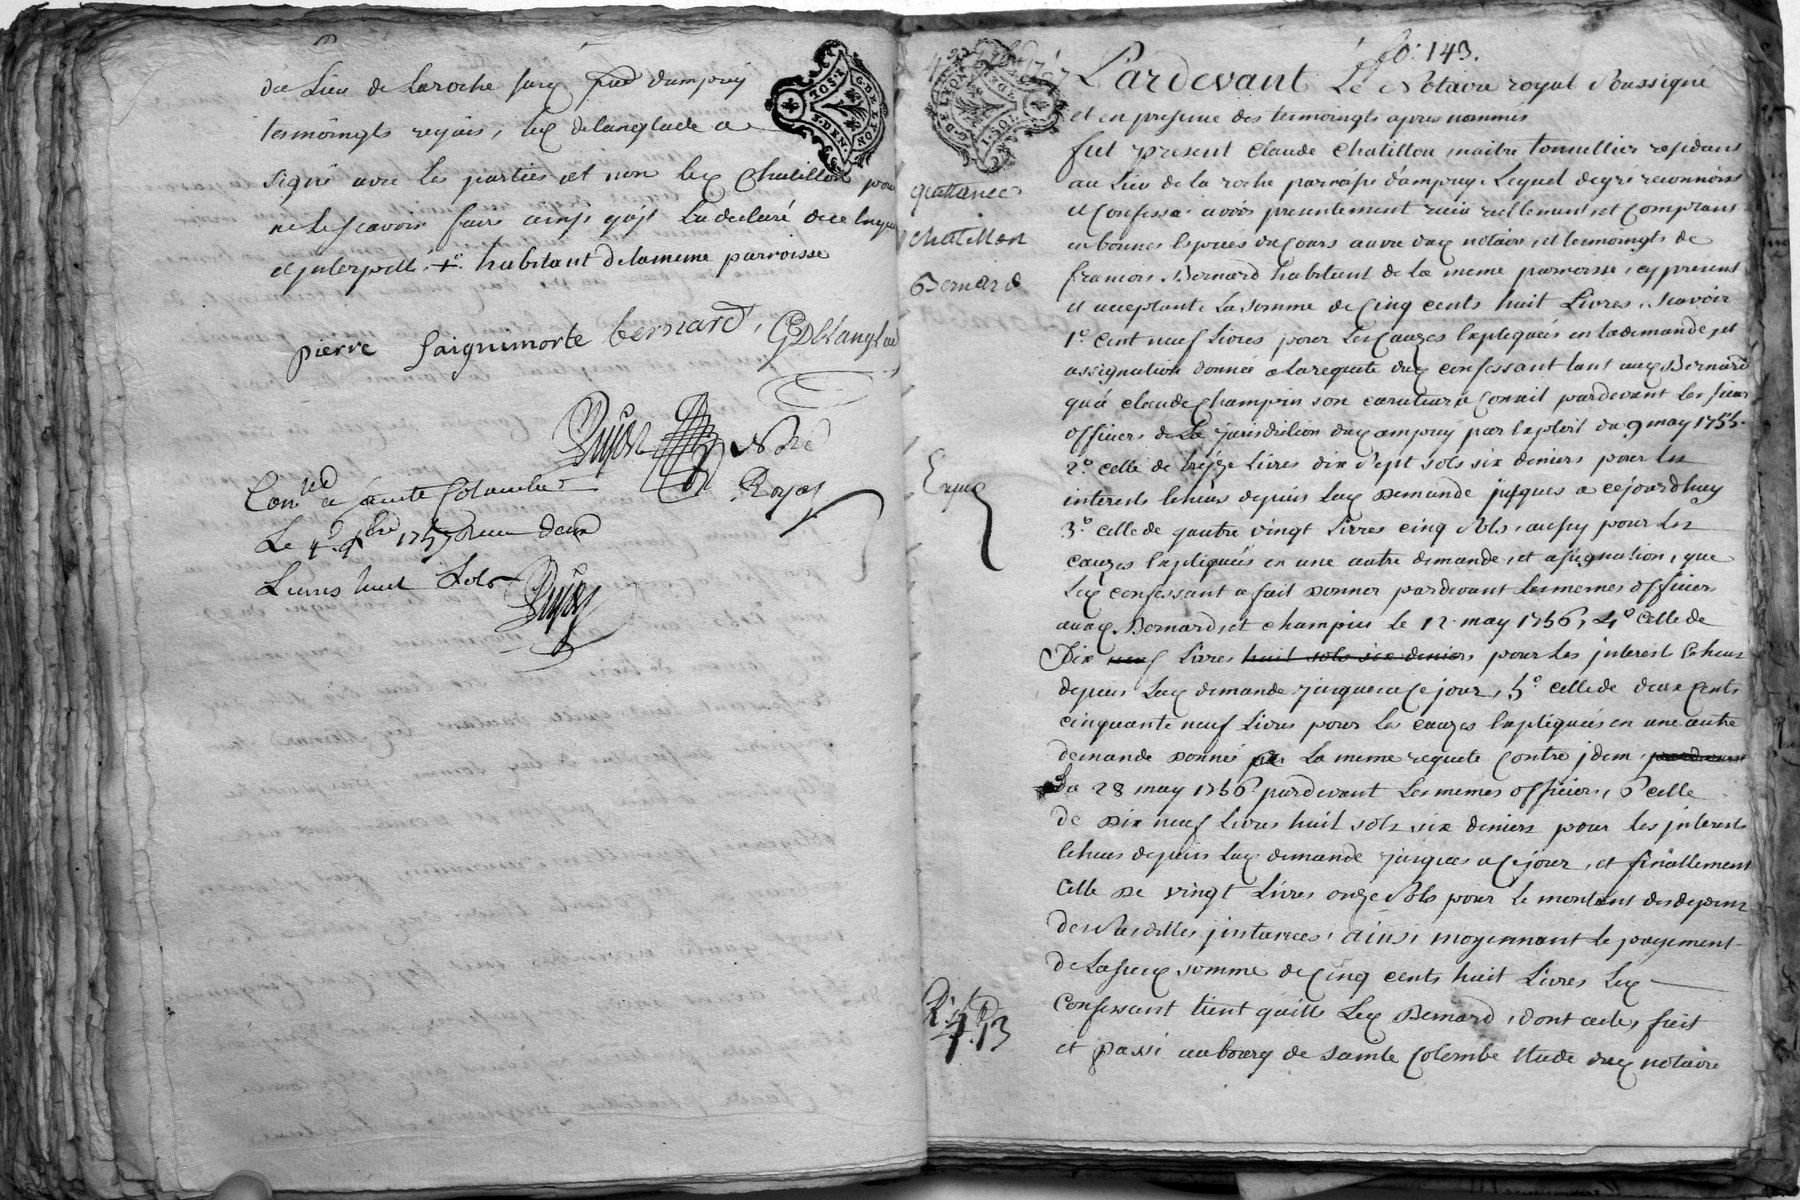 du Lieu de Laroche surd. pnd d'ampuy
tesmoingts requis, led. delanglade a
signé avec les parties et non led. Chatillon pour
ne le scavoir faire ainsi qu'il la declaré de ce enquis
et interpellé. + habitant de la meme parroisse
pierre Saignimorte bernard, GDelanglad
Dujon Nore
Royal
Con.lé a sainte Colombe
Le 4e 9bre 1757 Receu deux
Livres huit sols
Dujon
G. DE LYON 1. SOL. 8. DEN.
G. DE LYON 1. SOL
fo. 143.
4 9bre 1757
quittance
chatillon
Bernard
Expié
R. 4. 13
Pardevant Le Notaire royal Soussigné
et en presence des tesmoingts apres nommés
fut present Claude Chatillon maitre tonnellier residant
au Lieu de la roche parroisse d'ampuy, Lequel de gré reconnoist
et Confesse avoir presentement receu reellement, et Comptant
en bonnes Especes du Cours au veu dud. notaire, et tesmoingts de
francois Bernard habitant de la meme parroisse, cy present
et acceptant, La somme de Cinq cents huit Livres, scavoir
1º. Cent neuf Livres pour Les Cauzes Expliqueés en la demande, et
assignation donneé a la requete dud. confessant tant aud. Bernard
qu'a claude Champin son curateur a Conseil pardevant Les sieurs
officiers de La jurisdiction dud. ampuy par Exploit du 9 may 1755.
2º. celle de treize Livres dix sept sols six deniers pour Les
interests Echus depuis Lad. Demande jusques a cejourdhuy
3º. celle de quatre vingt Livres cinq sols, aussy pour Les
cauzes Expliqueés en une autre demande, et assignation, que
Led. confessant a fait donner pardevant Les memes officiers
auxd. Bernard, et champin le 12 may 1756, 4º. Celle de
Dix neuf Livres huit sols six deniers pour Les interest Echeus
depuis Lad. demande jusques a Ce jour, 5º. celle de deux Cents
cinquante neuf Livres pour Les cauzes Expliqueés en une autre
demande donneé par La meme requete Contre idem pardevant
Du 28 may 1756 pardevant Les memes officiers, 6º celle
de Dix neuf Livres huit sols six deniers pour les interests
Echus depuis Lad. demande jusques a Ce jour, et finallement
Celle De vingt Livres onze sols pour Le montant des depens
Desdittes instances, ainsi moyennant Le payement
De Lasusd. somme de Cinq cents huit Livres Led.
Confessant tient quitte Led. Bernard, dont acte, fait
et passé au bourg de sainte Colombe Etude dud. notaire